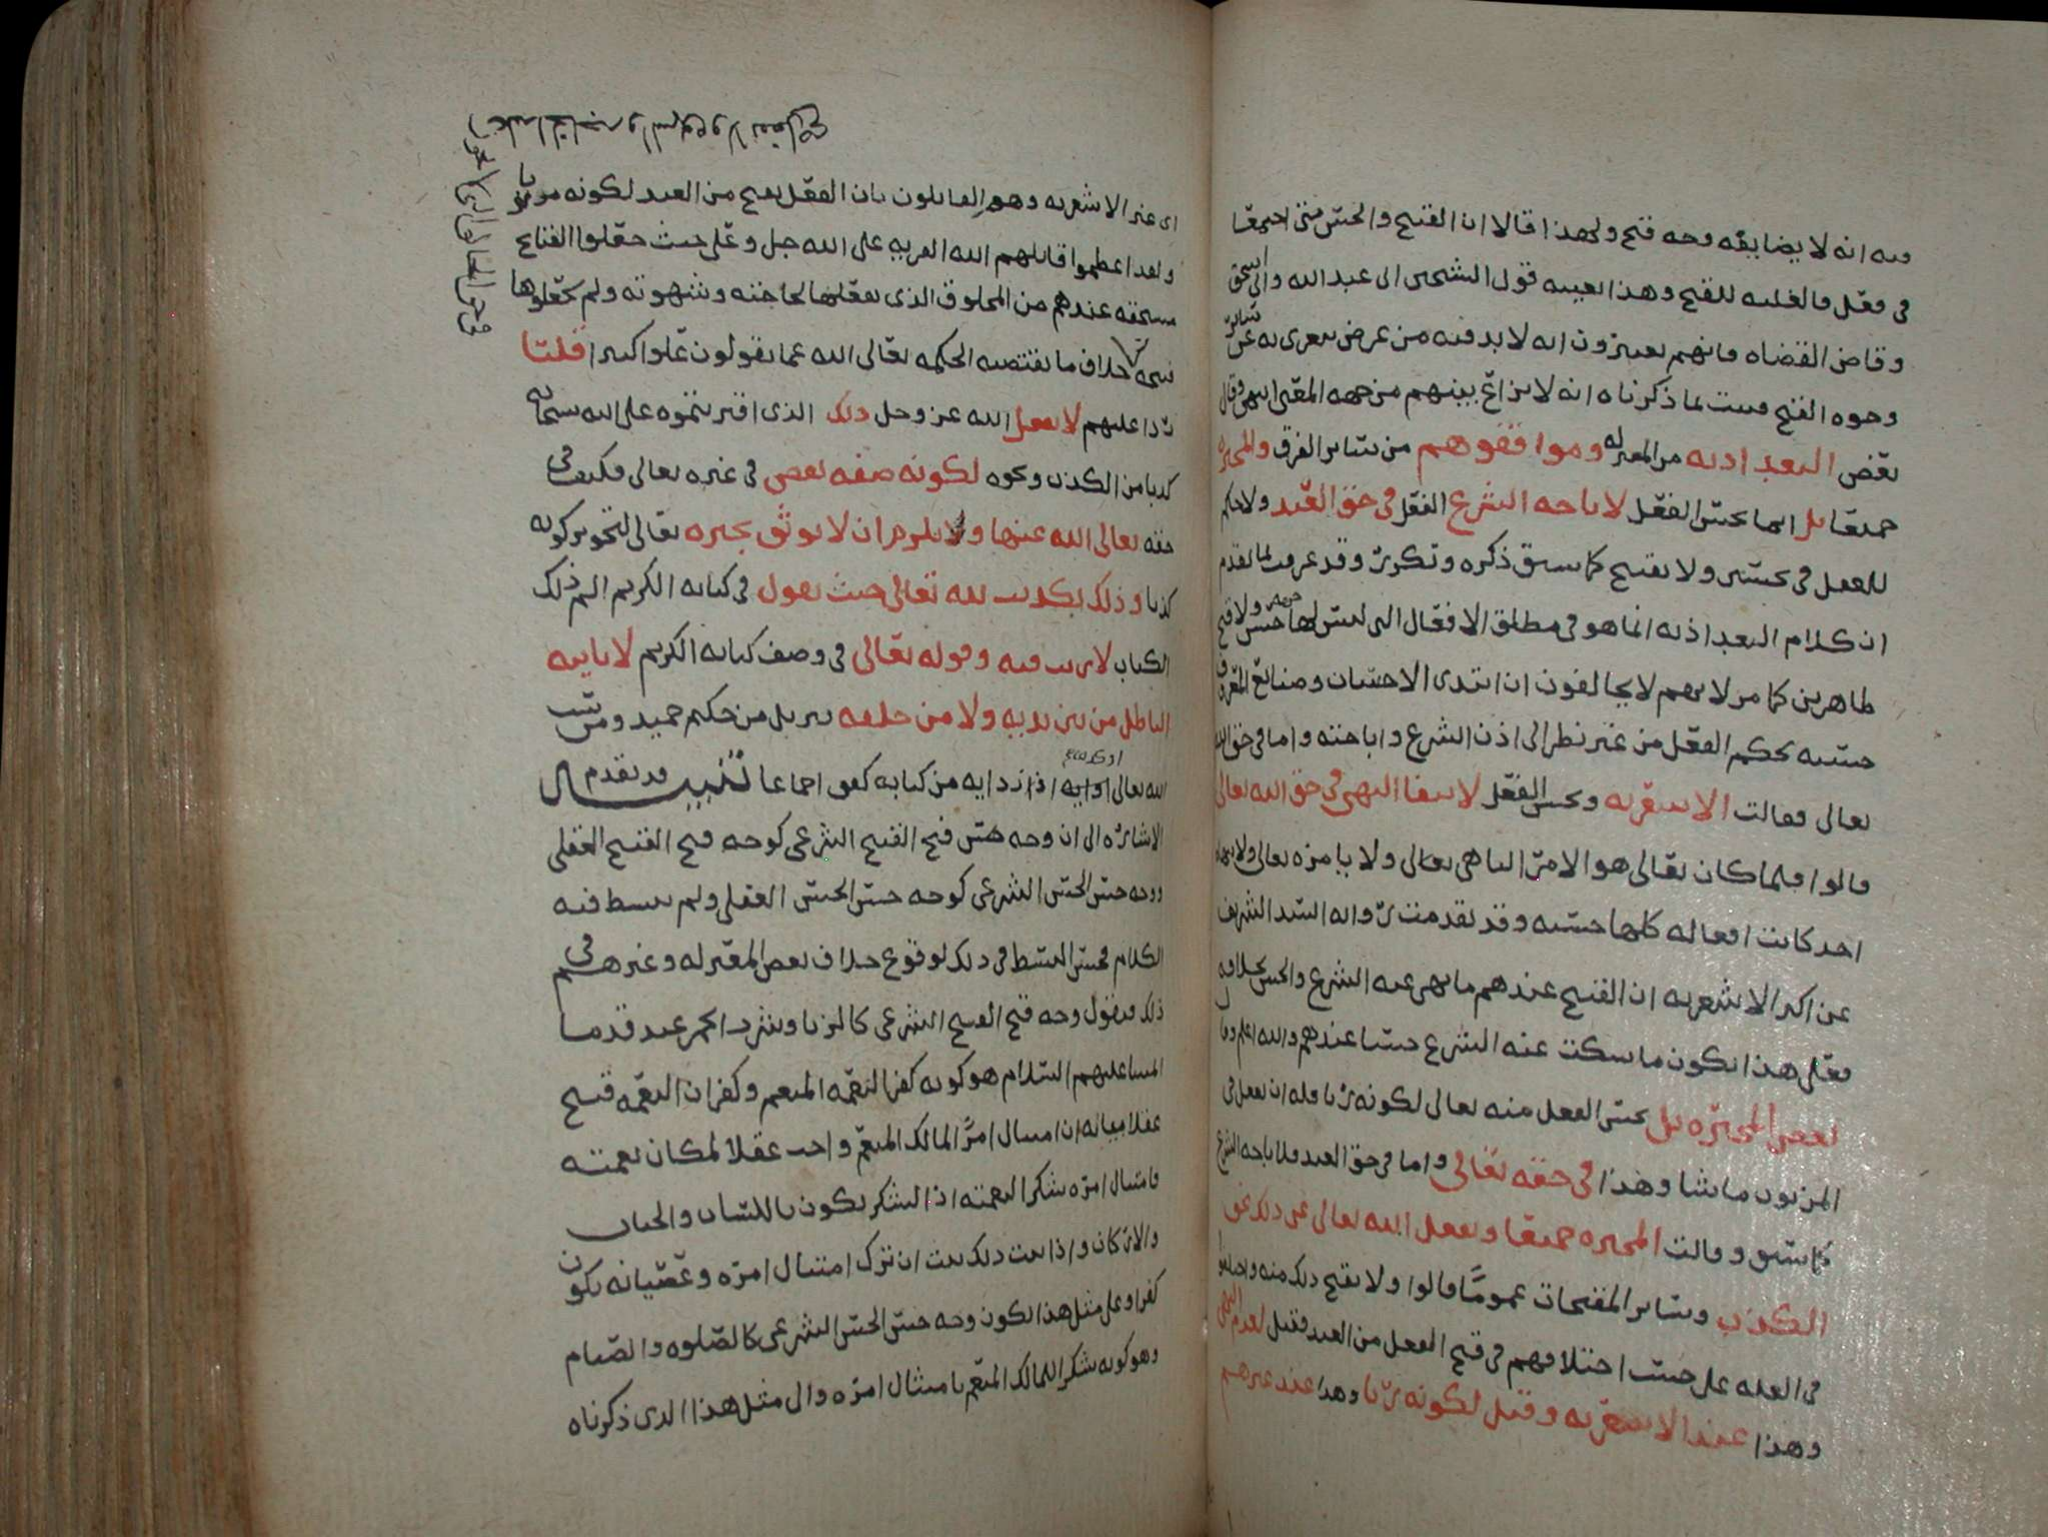 فيه انه لا يضايقه وجه قبح ولهذا قالا ان القبح والحسن متى اجتمعا
في فعل فالغلبه للقبح وهذا بعينه قول الشيخين ابي عبد الله وابي اسحق
وقاضي القضاه فانهم يعتبرون انه لا بد فيه من غرض يعرى به عن سائر
وجوه القبح فثبت لما ذكرناه انه لا نزاع بينهم من جهه المعنى انتهى وقال
بعض البغداديه من المعتزله وموافقوهم من سائر الفرق والمجبره
جميعا بل انما يحسن الفعل لاباحه الشرع الفعل في حق العبد ولا حكم
للعقل في تحسين ولا تقبيح كما سبق ذكره وتكرر وقد عرفت لما تقدم
ان كلام البغداذيه انما هو في مطلق الافعال التي ليس لها جهه حسن ولا قبح
ظاهرين كما مر لانهم لا يخالفون ان ابتدى الاحسان وصنايع المعروف
حسنه بحكم العقل من غير نظر الى اذن الشرع واباحته واما في حق الله
تعالى فقالت الاشعريه ويحسن الفعل لانتفا النهي في حق الله تعالى
قالوا فلما كان تعالى هو الامر الناهي تعالى ولا يامره تعالى ولا ينهاه
احد كانت افعاله كلها حسنه وقد تقدمت روايه السيد الشريف
عن اكثر الاشعريه ان القبيح عندهم ما نهى عنه الشرع والحسن بخلافه
فعلى هذا يكون ما سكت عنه الشرع حسنا عندهم والله اعلم وقال
بعض المجبره بل يحسن الفعل منه تعالى لكونه ربا فله ان يفعل في
المربوب ما يشا وهذا في حقه تعالى واما في حق العبد فلاباحه الشرع
كما سبق وقالت المجبره جميعا ويفعل الله تعالى عن ذلك نحو
الكذب وسائر المقبحات عموما قالوا ولا يقبح ذلك منه واختلفوا
في العله على حسب اختلافهم في قبح الفعل من العبد فقيل لعدم النهي
وهذا عند الاشعريه وقيل لكونه ربا وهذا عند غيرهم
اي غير الاشعريه وهم القائلون بان الفعل يقبح من العبد لكونه مربوبا
ولقد اعظموا قاتلهم الله الفريه على الله جل وعلى حيث جعلوا القبايح
مستحقه عندهم من المخلوق الذي يفعلها لحاجته وشهوته ولم يجعلوها
خلاف ما تقتضيه الحكمه تعالى الله عما يقولون علوا كبيرا قلنا
ردا عليهم لا يفعل الله عز وجل ذلك الذي افتريتموه على الله سبحانه
كذبا من الكذب ونحوه لكونه صفه نقص في غيره تعالى فكيف في
حقه تعالى الله عنها ولا يلزم ان لا يوثق بخبره تعالى لتجويز كونه
كذبا وذلك تكذيب لله تعالى حيث يقول في كتابه الكريم الم ذلك
الكتاب لا ريب فيه وقوله تعالى في وصف كتابه الكريم لا ياتيه
الباطل من بين يديه ولا من خلفه تنزيل من حكيم حميد ومن كذب
الله تعالى او ايه اذا رد ايه من كتابه كفر اجماعا تنبيه قد تقدم
الاشاره الى ان وجه حسن قبح القبيح الشرعي كوجه قبح القبيح العقلي
ووجه حسن الحسن الشرعي كوجه حسن الحسن العقلي ولم نبسط فيه
الكلام فحسن البسط في ذلك لوقوع خلاف بعض المعتزله وغيرهم في
ذلك فنقول وجه قبح القبيح الشرعي كالزنا وشرب الخمر عند قدما
ائمتنا عليهم السلام هو كونه كفر النعمه المنعم وكفران النعمه قبيح
عقلا بيانه ان امتثال امر المالك المنعم واجب عقلا لمكان نعمته
فامتثال امره شكرا لنعمته اذ الشكر يكون باللسان والجنان
والاركان واذا ثبت ذلك ثبت ان ترك امتثال امره وعصيانه يكون
كفرا وعلى مثل هذا يكون وجه حسن الحسن الشرعي كالصلوه والصيام
وهو كونه شكرا للمالك المنعم بامتثال امره والى مثل هذا الذي ذكرناه